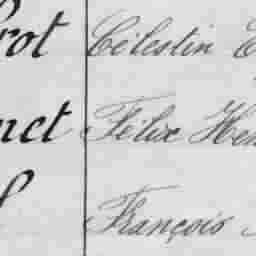 rot Célestin
nct Félix Hen
François